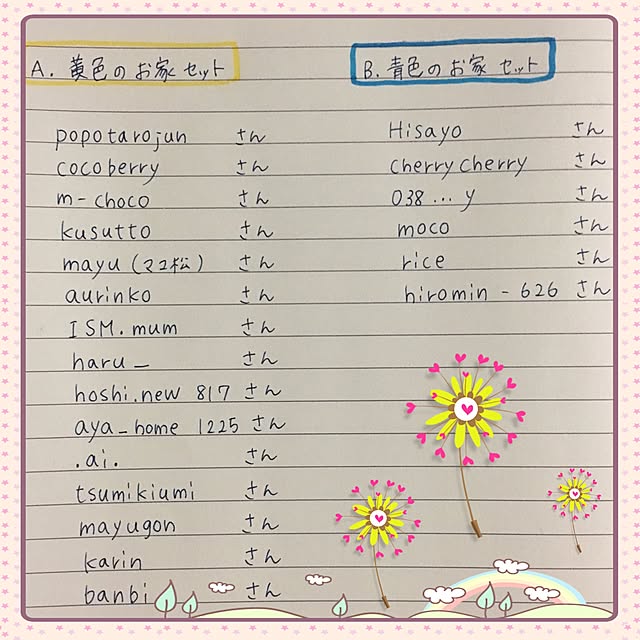 A. 黄色のお家セット
popotarojun さん
cocoberry さん
m-choco さん
kusutto さん
mayu (マユ松) さん
aurinko さん
ISM.mum さん
haru_ さん
hoshi.new 817 さん
aya_home 1225 さん
.ai. さん
tsumikiumi さん
mayugon さん
karin さん
banbi さん
B. 青色のお家セット
Hisayo さん
cherrycherry さん
038...y さん
moco さん
rice さん
hiromin-626 さん